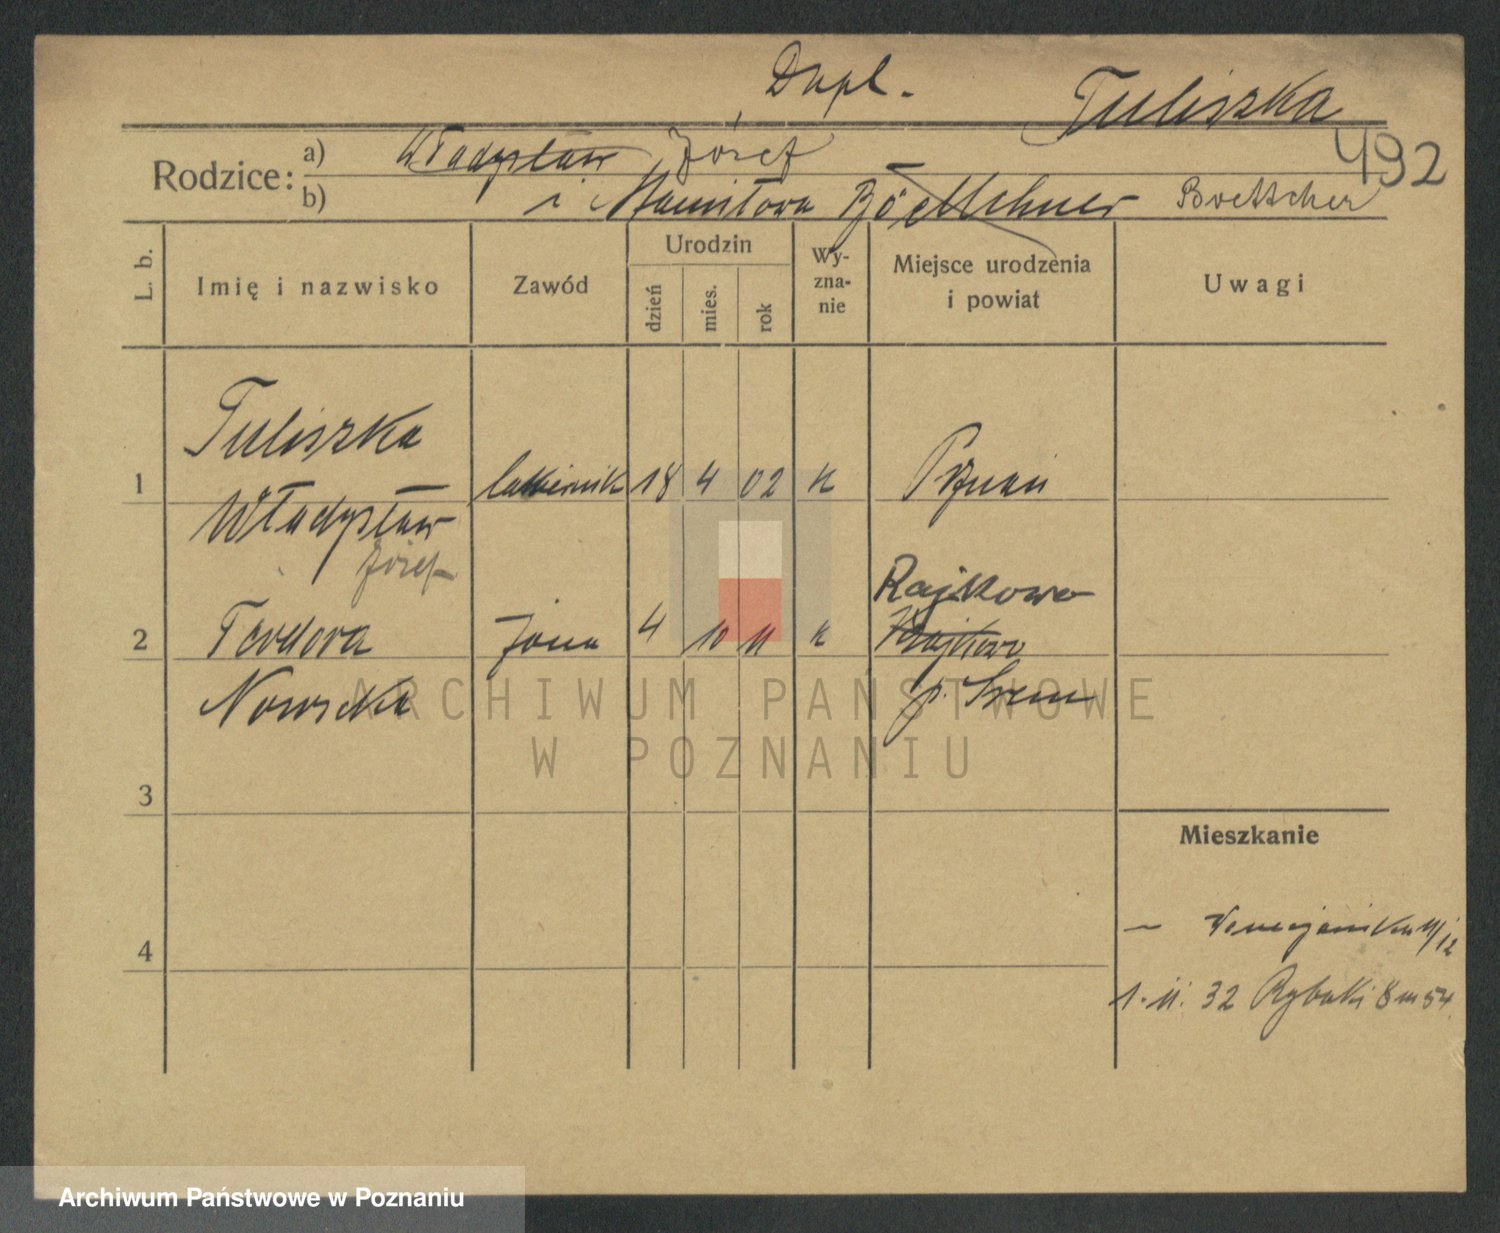 Dupl.
Tuliszka
492
Rodzice:
a) Władysław Józef
b) i Stanisława Böttchner Boettcher
L. b.
Imię i nazwisko
Zawód
Urodzin
dzień
mies.
rok
Wy-
zna-
nie
Miejsce urodzenia
i powiat
Uwagi
Tuliszka
1 lakiernik 18 4 02 k Poznań
Władysław
Józef
Rajkowo
2 Teodora żona 4 10 11 k
Nowicka p. Śrem
3
4
Mieszkanie
— Wenecjańska 11/12
1. 11. 32 Rybaki 8 m 54.
ARCHIWUM PAŃSTWOWE
W POZNANIU
Archiwum Państwowe w Poznaniu